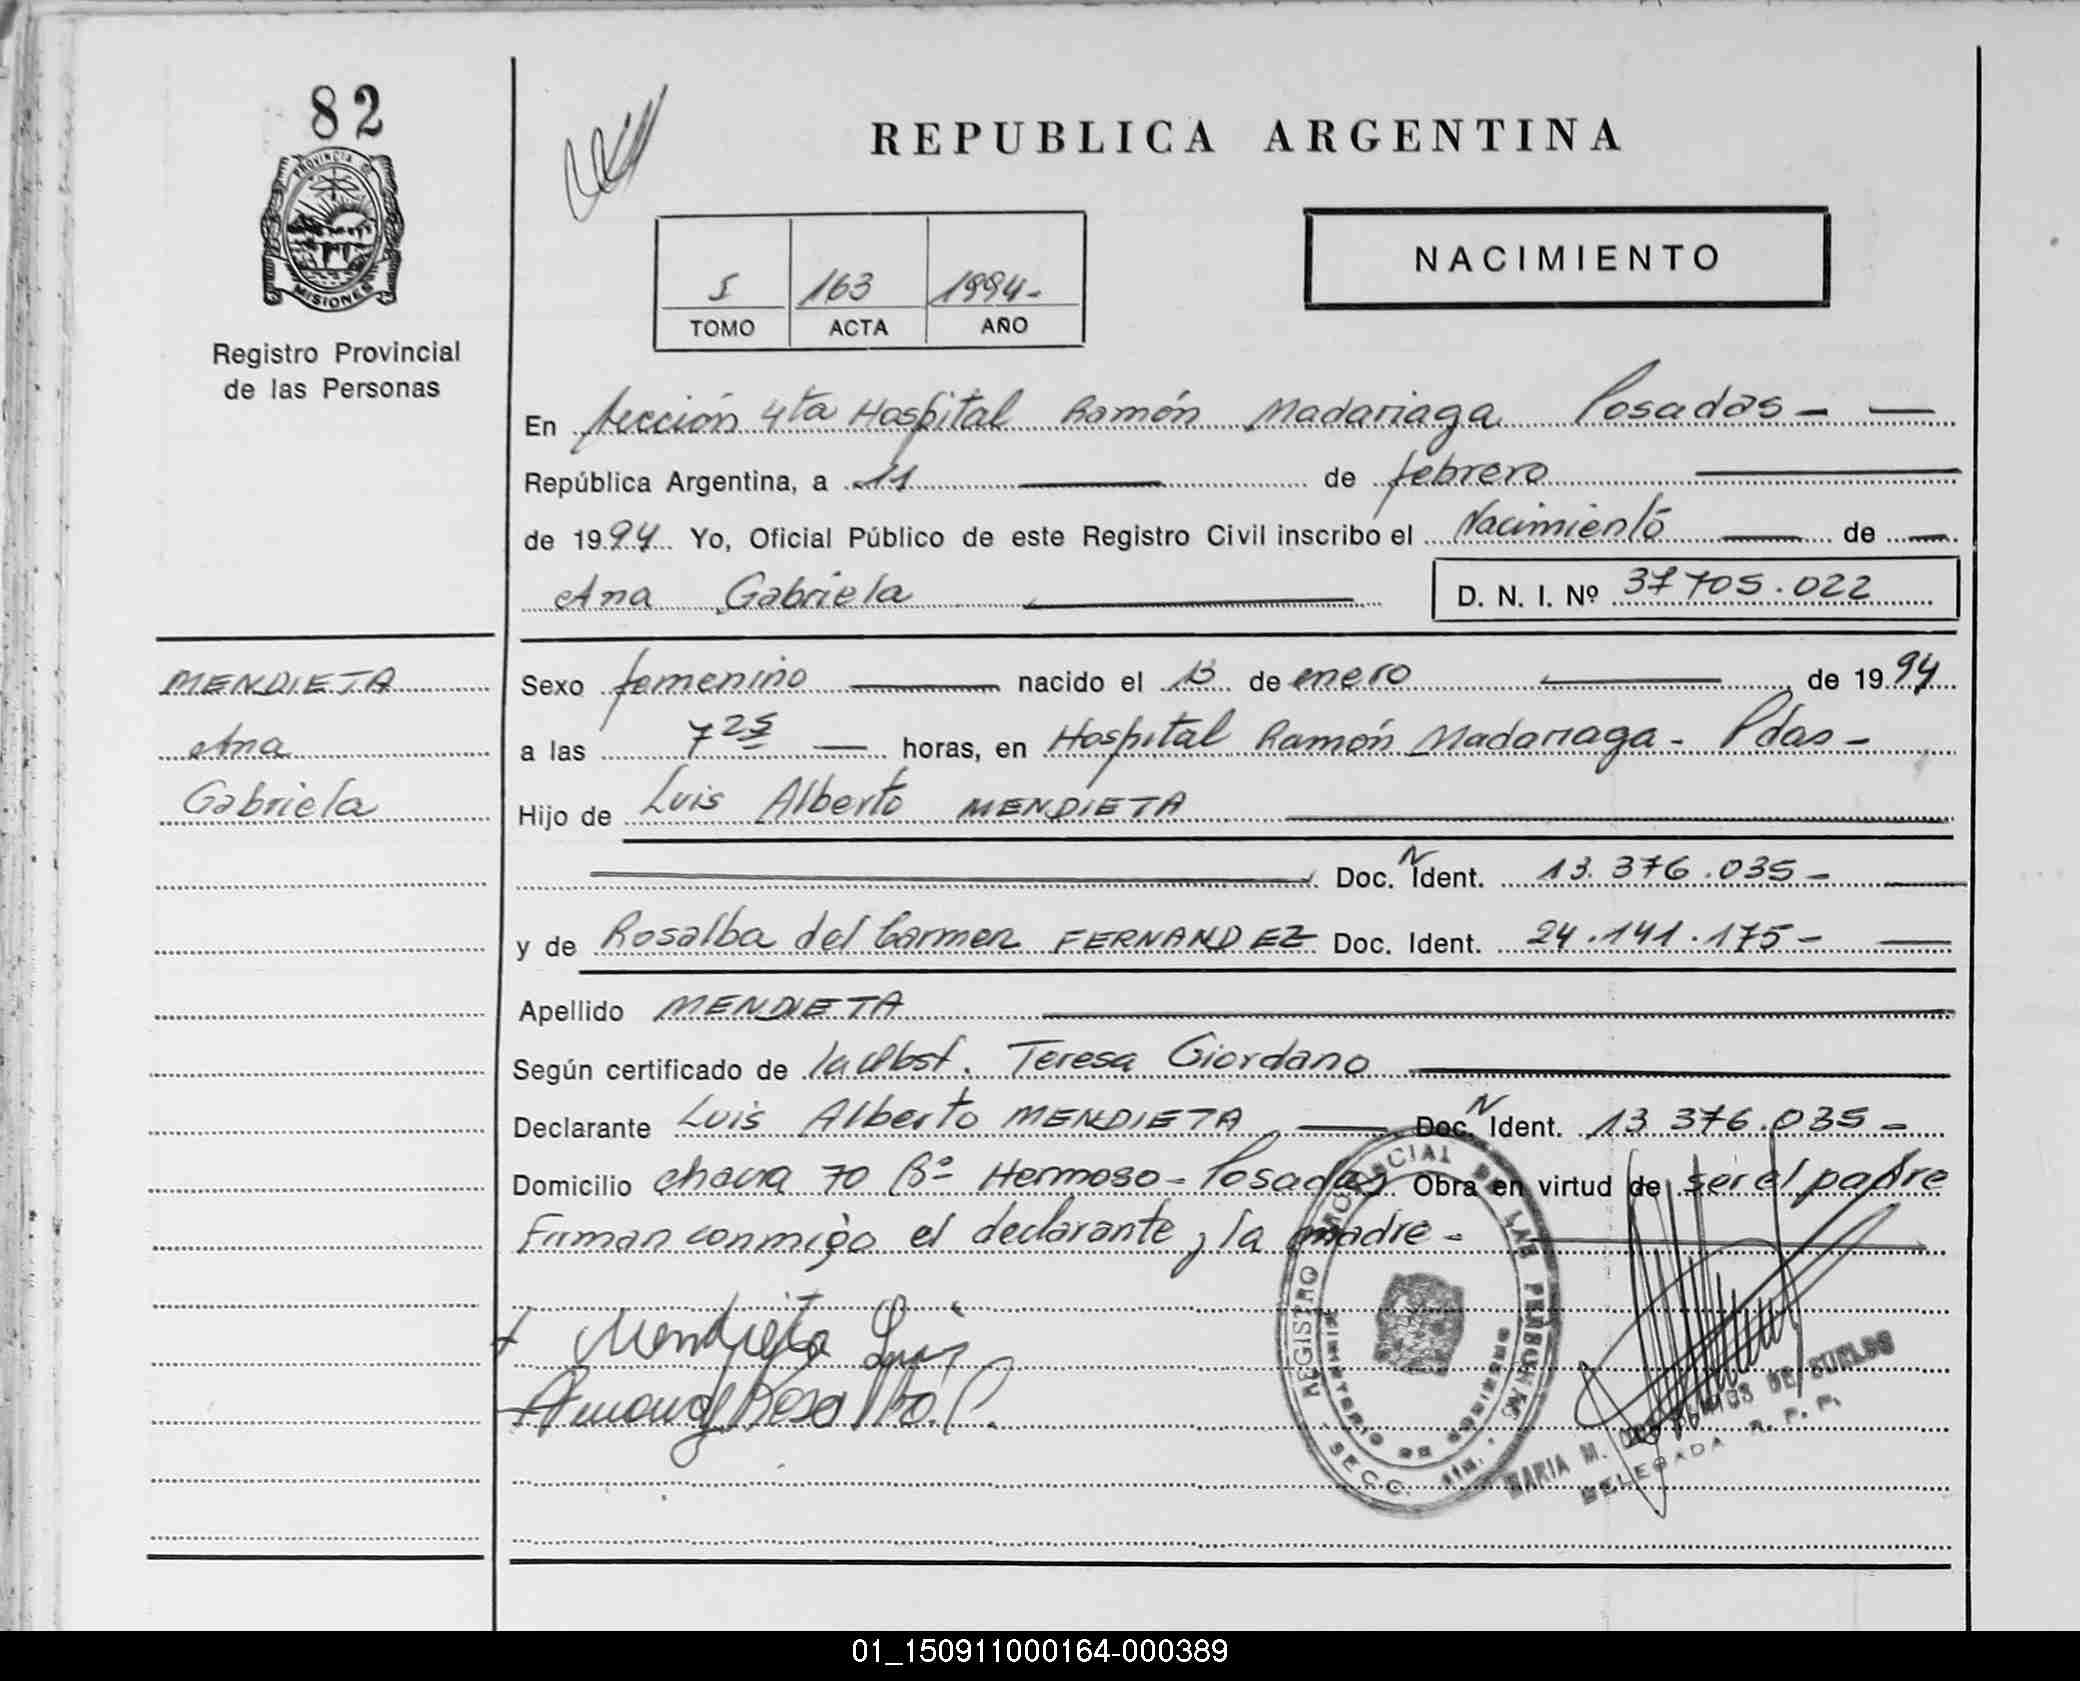 82
REPUBLICA ARGENTINA
PROVINCIA DE
MISIONES
Registro Provincial
de las Personas
NACIMIENTO
I 163 1994-
TOMO ACTA AÑO
En Sección 4ta Hospital Ramón Madariaga Posadas -
República Argentina, a 11 de febrero
de 1994 Yo, Oficial Público de este Registro Civil inscribo el Nacimiento de
Ana Gabriela
D. N. I. Nº 37 705.022
MENDIETA
Ana
Gabriela
Sexo femenino nacido el 13 de enero de 1994
a las 7 25 horas, en Hospital Ramón Madariaga - Pdas -
Hijo de Luis Alberto MENDIETA
Doc. N Ident. 13.376.035 -
y de Rosalba del Carmen FERNANDEZ Doc. Ident. 24.141.175 -
Apellido MENDIETA
Según certificado de la Obst. Teresa Giordano
Declarante Luis Alberto MENDIETA Doc. N Ident. 13 376.035 -
Domicilio chacra 70 Bº Hermoso - Posadas Obra en virtud de ser el padre
Firman conmigo el declarante y la madre -
Mendieta Luis
Rosalba C.
REGISTRO PROVINCIAL DE LAS PERSONAS
MINISTERIO DE GOBIERNO
SECC. 4ta.
MARIA M. DE DUELOS
DELEGADA R. P. P.
01_150911000164-000389